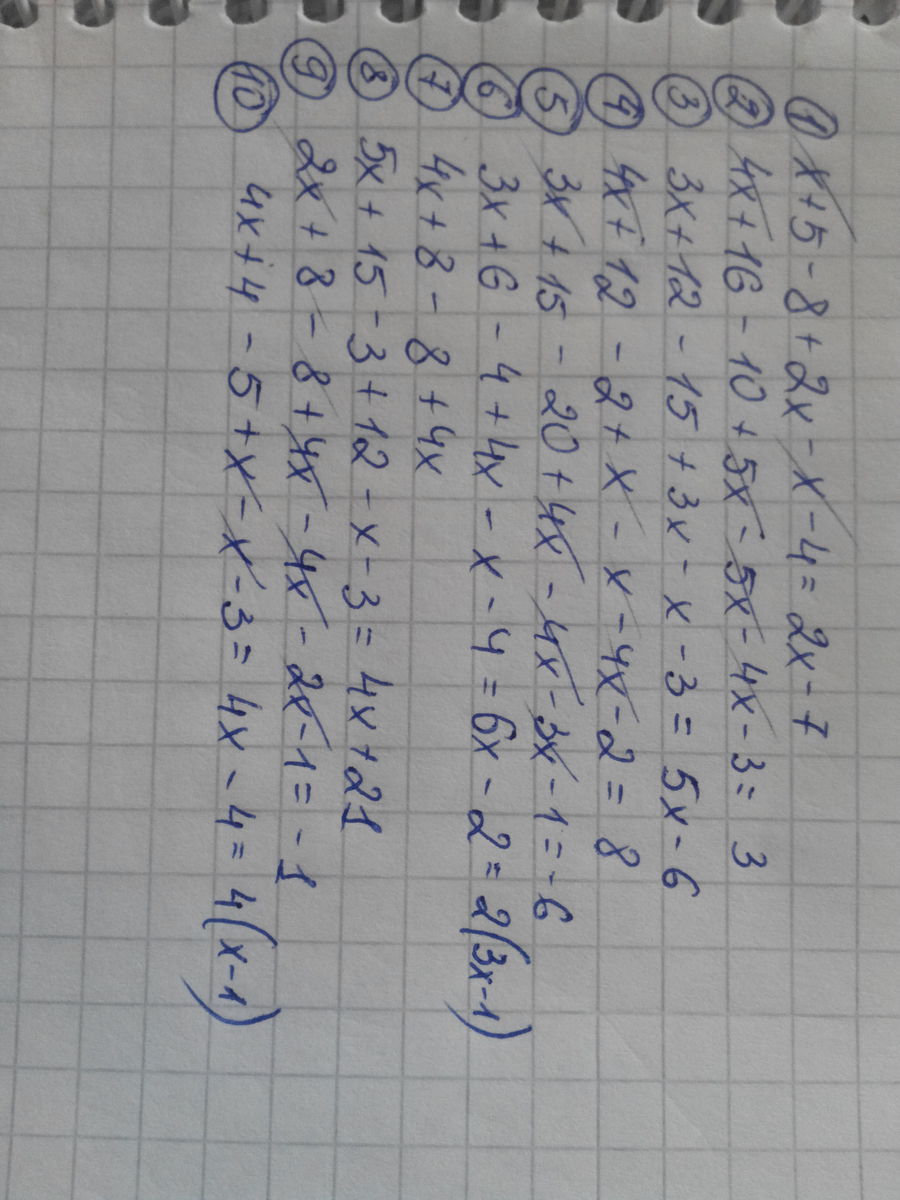 ① x+5-8+2x-x-4=2x-7
② 4x+16-10+5x-5x-4x-3=3
③ 3x+12-15+3x-x-3=5x-6
④ 4x+12-2+x-x-4x-2=8
⑤ 3x+15-20+4x-4x-3x-1=-6
⑥ 3x+6-4+4x-x-4=6x-2=2(3x-1)
⑦ 4x+8-8+4x
⑧ 5x+15-3+12-x-3=4x+21
⑨ 2x+8-8+4x-4x-2x-1=-1
⑩ 4x+4-5+x-x-3=4x-4=4(x-1)